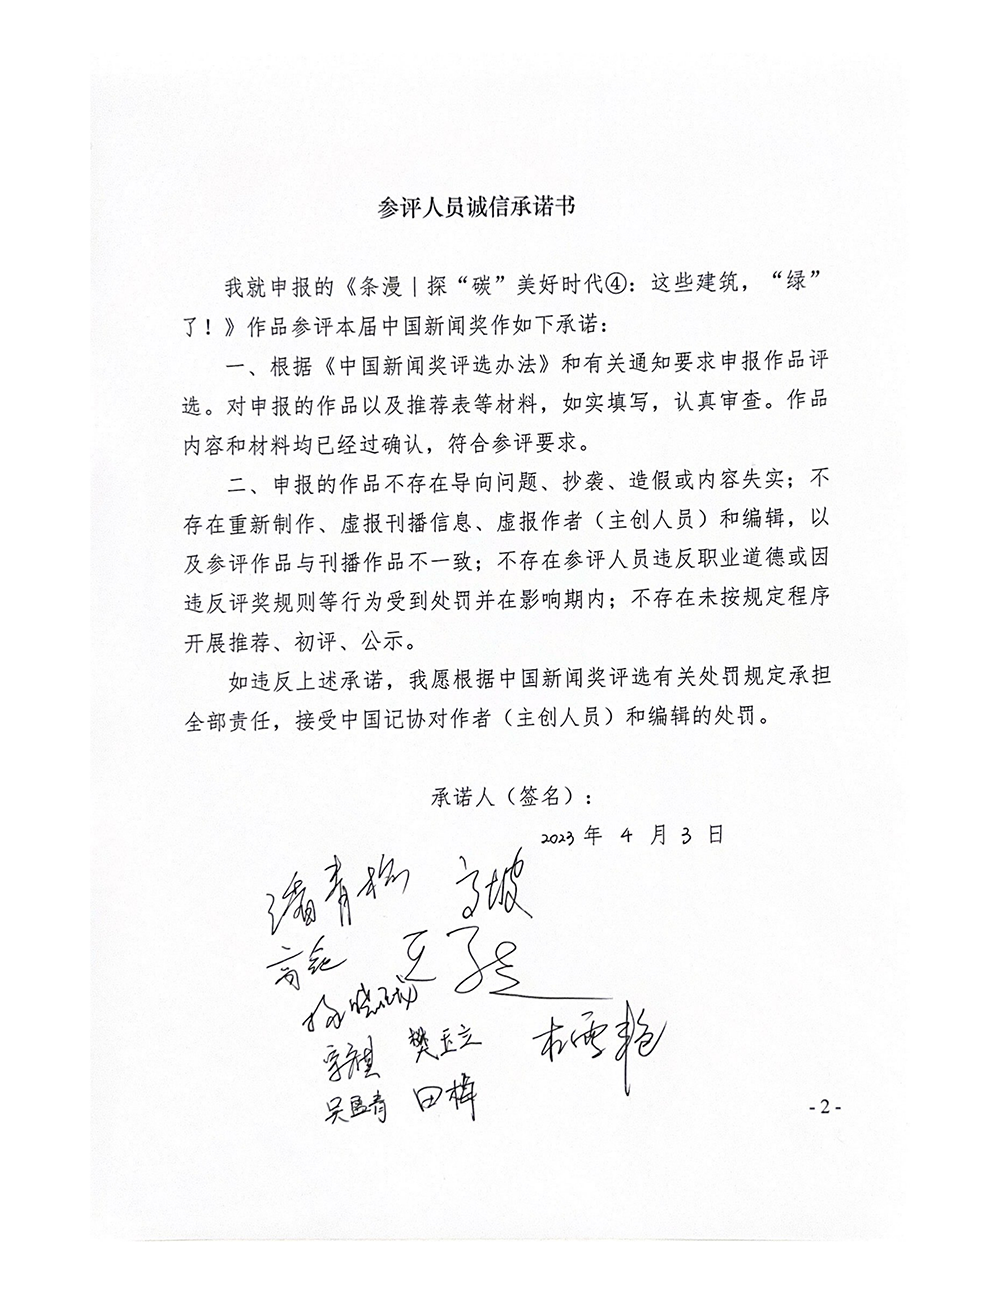 参评人员诚信承诺书
我就申报的《条漫|探“碳”美好时代④：这些建筑，“绿”
了！》作品参评本届中国新闻奖作如下承诺：
一、根据《中国新闻奖评选办法》和有关通知要求申报作品评
选。对申报的作品以及推荐表等材料，如实填写，认真审查。作品
内容和材料均已经过确认，符合参评要求。
二、申报的作品不存在导向问题、抄袭、造假或内容失实；不
存在重新制作、虚报刊播信息、虚报作者（主创人员）和编辑，以
及参评作品与刊播作品不一致；不存在参评人员违反职业道德或因
违反评奖规则等行为受到处罚并在影响期内；不存在未按规定程序
开展推荐、初评、公示。
如违反上述承诺，我愿根据中国新闻奖评选有关处罚规定承担
全部责任，接受中国记协对作者（主创人员）和编辑的处罚。
承诺人（签名）：
2023 年 4 月 3 日
高坡
樊玉立
田梅
- 2 -